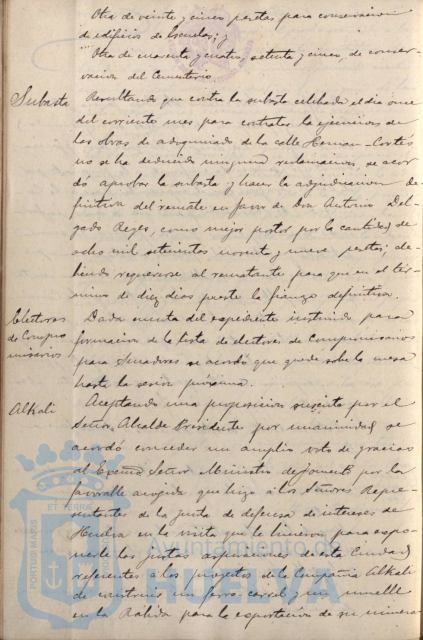 Otra de veinte y cinco pesetas para conservacion
de edificios de Escuelas; y
Otra de cuarenta y cuatro, setenta y cinco, de conser-
vacion del Cementerio.
Subasta
Resultando que contra la subasta celebrada el dia once
del corriente mes para contratar la ejecucion de
las obras de adoquinado de la calle Hernan-Cortés
no se ha deducido ninguna reclamacion, se acor-
dó aprobar la subasta y hacer la adjudicacion de-
finitiva del remate en favor de Don Antonio Del-
gado Reyes, como mejor postor por la cantidad de
ocho mil setecientos noventa y nueve pesetas; de-
biendo requerirse al rematante para que en el tér-
mino de diez dias preste la fianza definitiva.
Electores
de Compro
misarios
Dada cuenta del expediente instruido para
formacion de la lista de electores de Compromisarios
para Senadores se acordó que quede sobre la mesa
hasta la sesion próxima.
Alkali
Aceptando una proposicion suscrita por el
Señor Alcalde Presidente por unanimidad se
acordó conceder un amplio voto de gracias
al Excmo Señor Ministro de Fomento por la
favorable acogida que hizo a los Señores Repre-
sentantes de la junta de defensa de intereses de
Huelva en la visita que le hicieron para expo-
nerle las justas aspiraciones de esta Ciudad
referentes a los proyectos de la Compañia Alkali
de construir un ferro-carril y un muelle
en la Rábida para la exportacion de su mineral
PORTUS MARIS
ET TERRAE
Ayuntamiento de
HUELVA